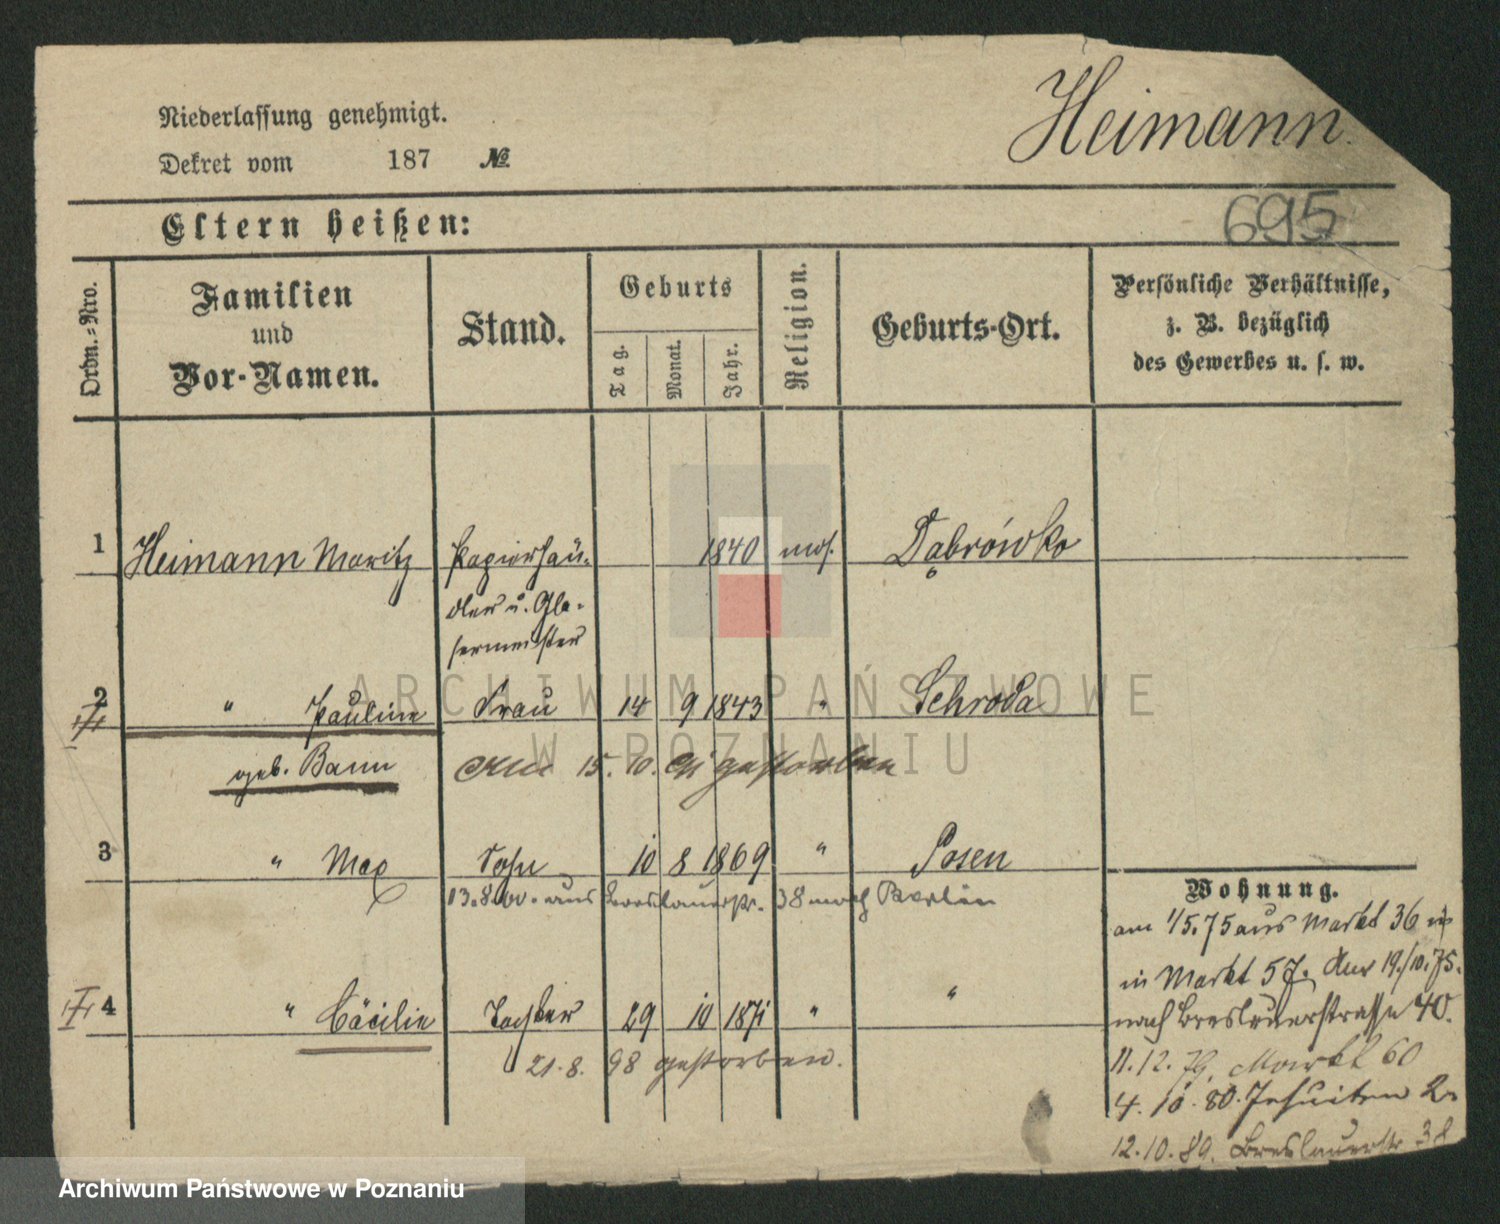 Heimann.
Niederlassung genehmigt.
Dekret vom 187 №
Eltern heißen:
695
Ordn.-Nro.
Familien
und
Vor-Namen.
Stand.
Geburts
Tag.
Monat.
Jahr.
Religion.
Geburts-Ort.
Persönliche Verhältnisse,
z. B. bezüglich
des Gewerbes u. s. w.
1 Heimann Moritz Papierhän- 1840 mos. Dąbrówko
dler u. Gla-
sermeister
2 " Pauline Frau 14 9 1843 " Schroda
geb. Bann 15. 10. gestorben
3 " Max Sohn 10 8 1869 " Posen
13.8. aus Breslauerstr. 38 nach Berlin
4 " Cäcilie Tochter 29 10 1871 " "
21. 8. 98 gestorben.
Wohnung.
am 1/5.75 aus Markt 36
in Markt 57. 19./10.75.
nach Breslauerstrasse 40.
11. 12. 79. Markt 60
4. 10. 80. Jesuiten 2
12. 10. 89. Breslauerstr 38
ARCHIWUM PAŃSTWOWE
W POZNANIU
Archiwum Państwowe w Poznaniu